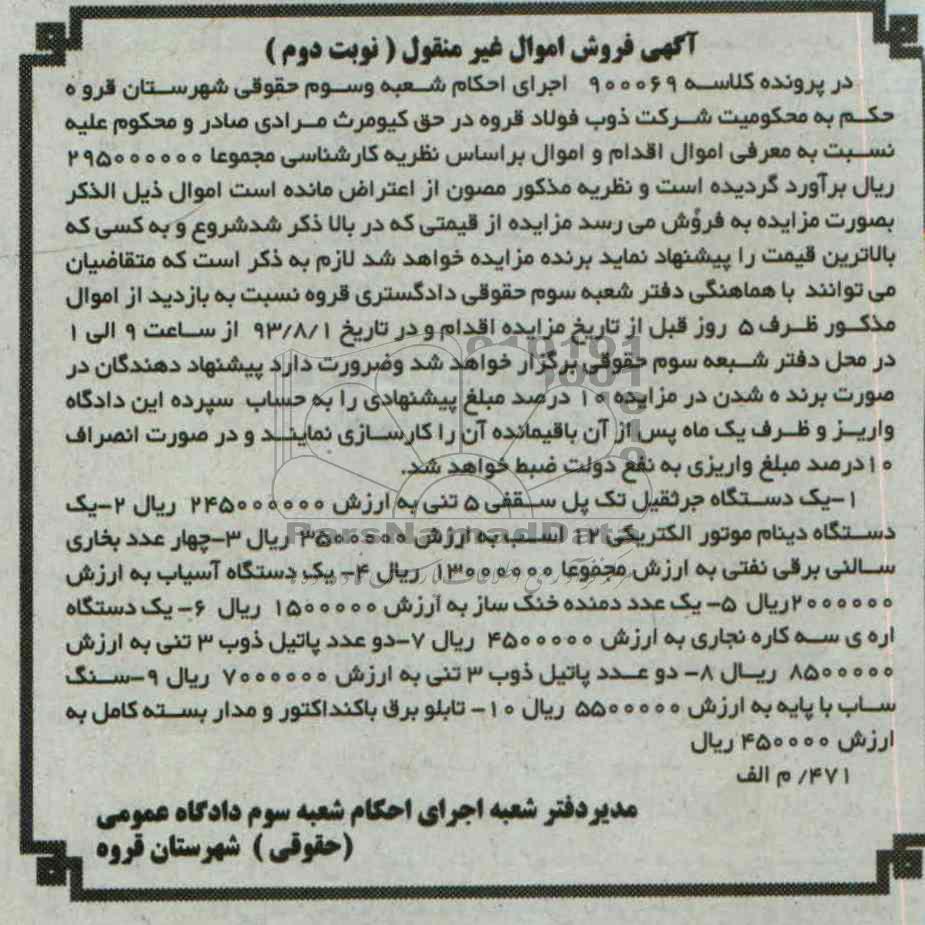 آگهی فروش اموال غیر منقول ( نوبت دوم )
در پرونده کلاسه ۹۰۰۰۶۹ اجرای احکام شعبه وسوم حقوقی شهرستان قرو ه
حکم به محکومیت شرکت ذوب فولاد قروه در حق کیومرث مرادی صادر و محکوم علیه
نسبت به معرفی اموال اقدام و اموال براساس نظریه کارشناسی مجموعا ۲۹۵۰۰۰۰۰۰
ریال برآورد گردیده است و نظریه مذکور مصون از اعتراض مانده است اموال ذیل الذکر
بصورت مزایده به فروش می رسد مزایده از قیمتی که در بالا ذکر شدشروع و به کسی که
بالاترین قیمت را پیشنهاد نماید برنده مزایده خواهد شد لازم به ذکر است که متقاضیان
می توانند با هماهنگی دفتر شعبه سوم حقوقی دادگستری قروه نسبت به بازدید از اموال
مذکور ظرف ۵ روز قبل از تاریخ مزایده اقدام و در تاریخ ۹۳/۸/۱ از ساعت ۹ الی ۱
در محل دفتر شبعه سوم حقوقی برگزار خواهد شد وضرورت دارد پیشنهاد دهندگان در
صورت برند ه شدن در مزایده ۱۰ درصد مبلغ پیشنهادی را به حساب سپرده این دادگاه
واریز و ظرف یک ماه پس از آن باقیمانده آن را کارسازی نمایند و در صورت انصراف
۱۰درصد مبلغ واریزی به نفع دولت ضبط خواهد شد.
۱-یک دستگاه جرثقیل تک پل سقفی ۵ تنی به ارزش ۲۴۵۰۰۰۰۰۰ ریال ۲-یک
دستگاه دینام موتور الکتریکی اسب به ارزش ۳۵۰۰۰۰۰ ریال ۳-چهار عدد بخاری
سالنی برقی نفتی به ارزش مجموعا ۱۳۰۰۰۰۰۰ ریال ۴- یک دستگاه آسیاب به ارزش
۲۰۰۰۰۰۰ریال ۵- یک عدد دمنده خنک ساز به ارزش ۱۵۰۰۰۰۰ ریال ۶- یک دستگاه
اره ی سه کاره نجاری به ارزش ۴۵۰۰۰۰۰ ریال ۷-دو عدد پاتیل ذوب ۳ تنی به ارزش
۸۵۰۰۰۰۰ ریال ۸- دو عدد پاتیل ذوب ۳ تنی به ارزش ۷۰۰۰۰۰۰ ریال ۹-سنگ
ساب با پایه به ارزش ۵۵۰۰۰۰۰ ریال ۱۰- تابلو برق باکنداکتور و مدار بسته کامل به
ارزش ۴۵۰۰۰۰ ریال
۴۷۱/ م الف
مدیردفتر شعبه اجرای احکام شعبه سوم دادگاه عمومی
(حقوقی ) شهرستان قروه
ParsNamadData